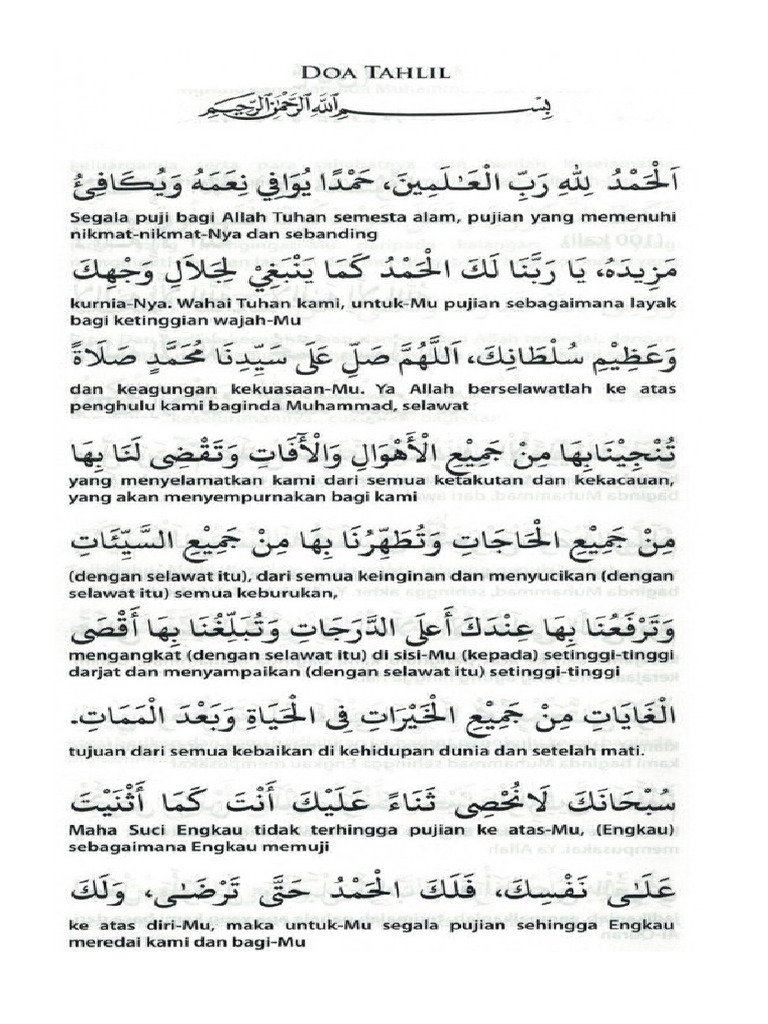 DOA TAHLIL
بِسْمِ اللَّهِ الرَّحْمَٰنِ الرَّحِيمِ
اَلْحَمْدُ لِلهِ رَبِّ الْعَـٰلَمِينَ، حَمْدًا يُوَافِي نِعَمَهُ وَيُكَافِئُ
Segala puji bagi Allah Tuhan semesta alam, pujian yang memenuhi
nikmat-nikmat-Nya dan sebanding
مَزِيدَهُ، يَا رَبَّنَا لَكَ الْحَمْدُ كَمَا يَنْبَغِيْ لِجَلَالِ وَجْهِكَ
kurnia-Nya. Wahai Tuhan kami, untuk-Mu pujian sebagaimana layak
bagi ketinggian wajah-Mu
وَعَظِيْمِ سُلْطَانِكَ، اَللَّهُمَّ صَلِّ عَلَى سَيِّدِنَا مُحَمَّدٍ صَلَاةً
dan keagungan kekuasaan-Mu. Ya Allah berselawatlah ke atas
penghulu kami baginda Muhammad, selawat
تُنْجِيْنَابِهَا مِنْ جَمِيْعِ الْأَهْوَالِ وَالْأَفَاتِ وَتَقْضِى لَنَا بِهَا
yang menyelamatkan kami dari semua ketakutan dan kekacauan,
yang akan menyempurnakan bagi kami
مِنْ جَمِيْعِ الْحَاجَاتِ وَتُطَهِّرُنَا بِهَا مِنْ جَمِيْعِ السَّيِّئَاتِ
(dengan selawat itu), dari semua keinginan dan menyucikan (dengan
selawat itu) semua keburukan,
وَتَرْفَعُنَا بِهَا عِنْدَكَ أَعلَى الدَّرَجَاتِ وَتُبَلِّغُنَا بِهَا أَقْصَى
mengangkat (dengan selawat itu) di sisi-Mu (kepada) setinggi-tinggi
darjat dan menyampaikan (dengan selawat itu) setinggi-tinggi
الْغَايَاتِ مِنْ جَمِيْعِ الْخَيْرَاتِ فِى الْحَيَاةِ وَبَعْدَ الْمَمَاتِ.
tujuan dari semua kebaikan di kehidupan dunia dan setelah mati.
سُبْحَانَكَ لَانُحْصِى ثَنَاءً عَلَيْكَ أَنْتَ كَمَا أَثْنَيْتَ
Maha Suci Engkau tidak terhingga pujian ke atas-Mu, (Engkau)
sebagaimana Engkau memuji
عَلَـٰى نَفْسِكَ، فَلَكَ الْحَمْدُ حَتَّى تَرْضَـٰى، وَلَكَ
ke atas diri-Mu, maka untuk-Mu segala pujian sehingga Engkau
meredai kami dan bagi-Mu